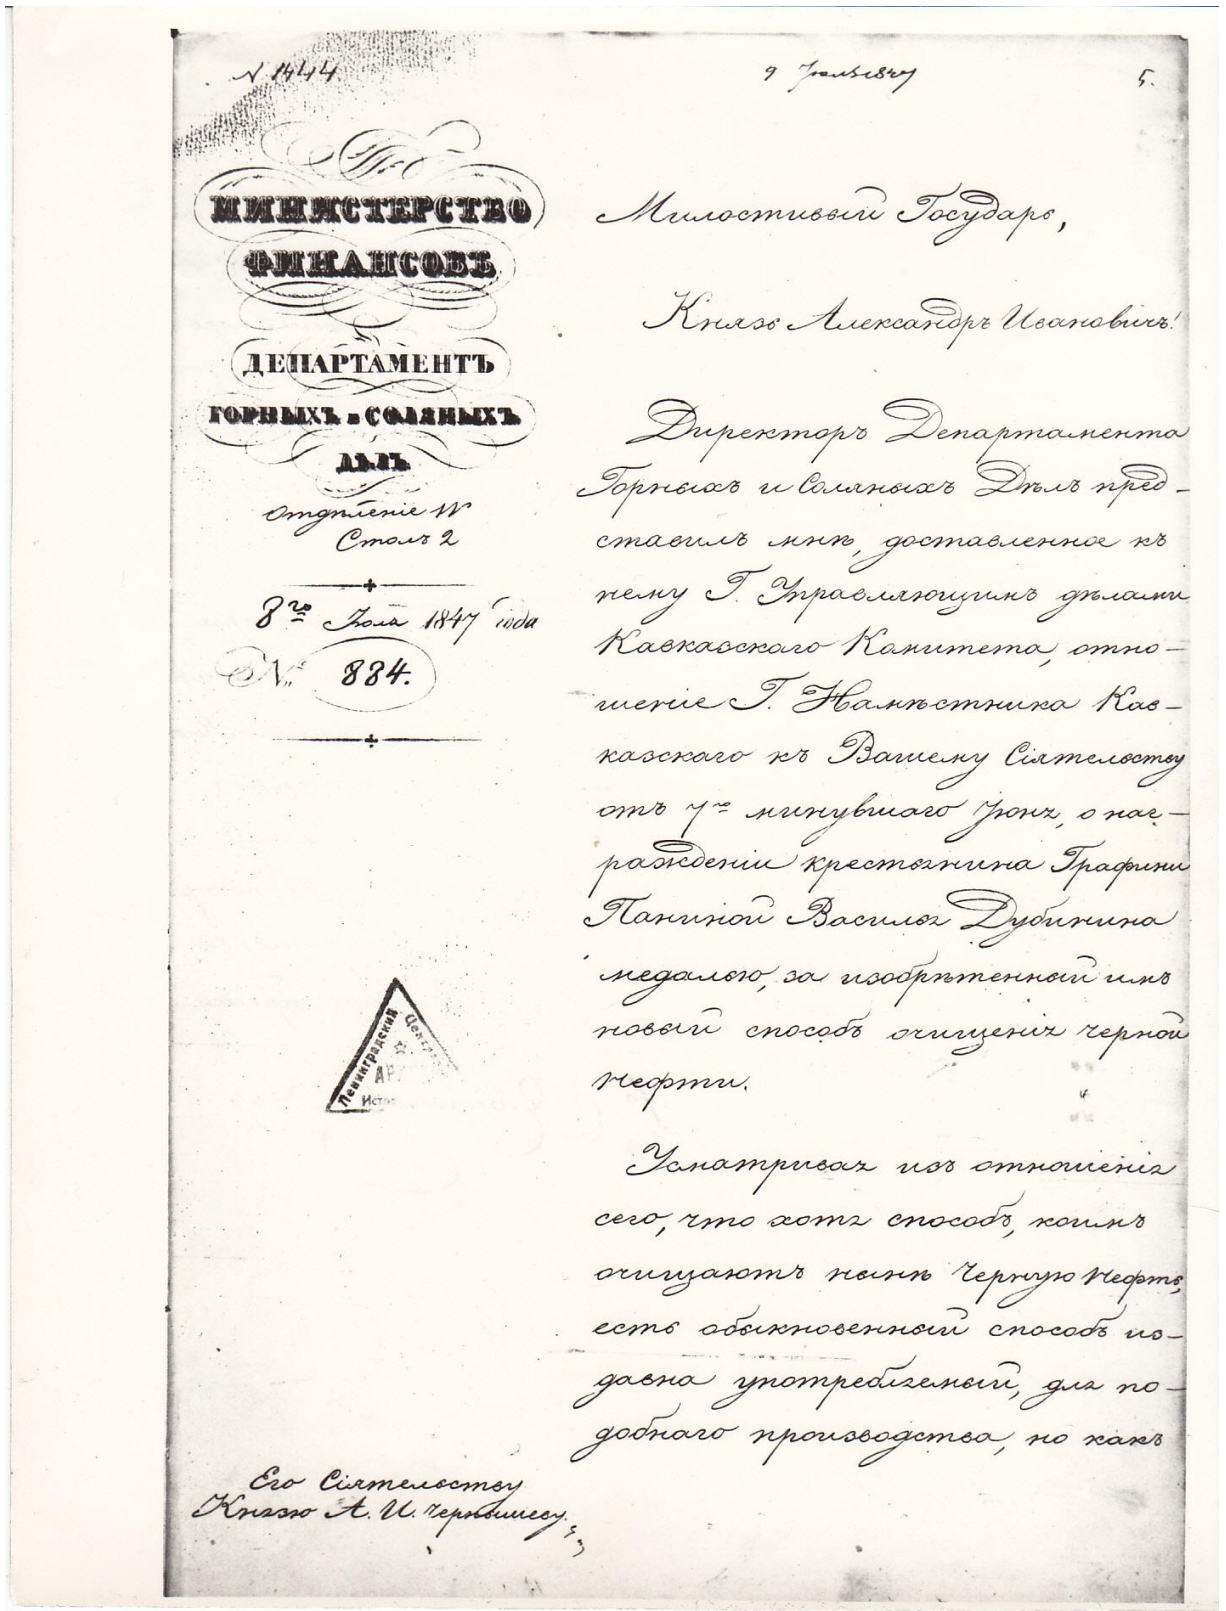 N 1444.
9 Іюль 1847
5.
МИНИСТЕРСТВО
ФИНАНСОВЪ
ДЕПАРТАМЕНТЪ
ГОРНЫХЪ и СОЛЯНЫХЪ
ДѢЛЪ
Отдѣленіе IV
Столъ 2
8го Іюля 1847 года
№ 884.
Милостивый Государь,
Князь Александръ Ивановичъ!
Директоръ Департамента
Горныхъ и Соляныхъ Дѣлъ пред-
ставилъ мнѣ, доставленное къ
нему Г. Управляющимъ дѣлами
Кавказскаго Комитета, отно-
шеніе Г. Намѣстника Кав-
казскаго къ Вашему Сіятельству
отъ 7го минувшаго Іюня, о наг-
ражденіи крестьянина Графини
Паниной Василья Дубинина
медалью, за изобрѣтенный имъ
новый способъ очищенія черной
нефти.
Усматривая изъ отношенія
сего, что хотя способъ, коимъ
очищаютъ нынѣ черную нефть,
есть обыкновенный способъ из-
давна употребляемый, для по-
добнаго производства, но какъ
Ленинградский
Его Сіятельству
Князю А. И. Чернышеву.